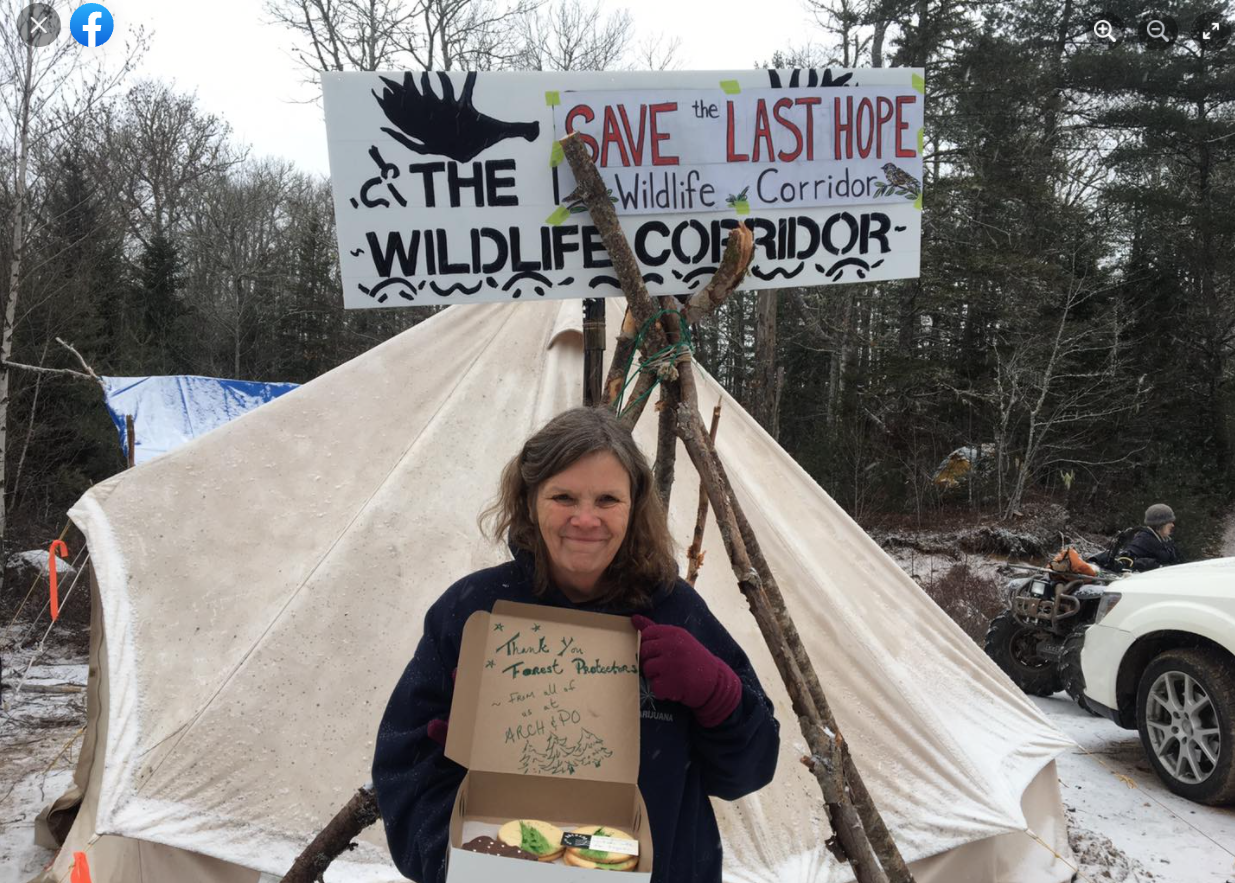 SAVE the LAST HOPE
Wildlife Corridor
THE
~WILDLIFE CORRIDOR~
Thank You
Forest Protectors
~ From all of
us at
ARCH & PO
MARIJUANA